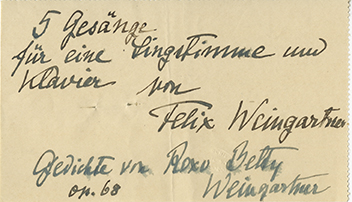 5 Gesänge
für eine Singstimme und
Klavier von
Felix Weingartner
Gedichte von Roxo Betty
Weingartner
op. 68